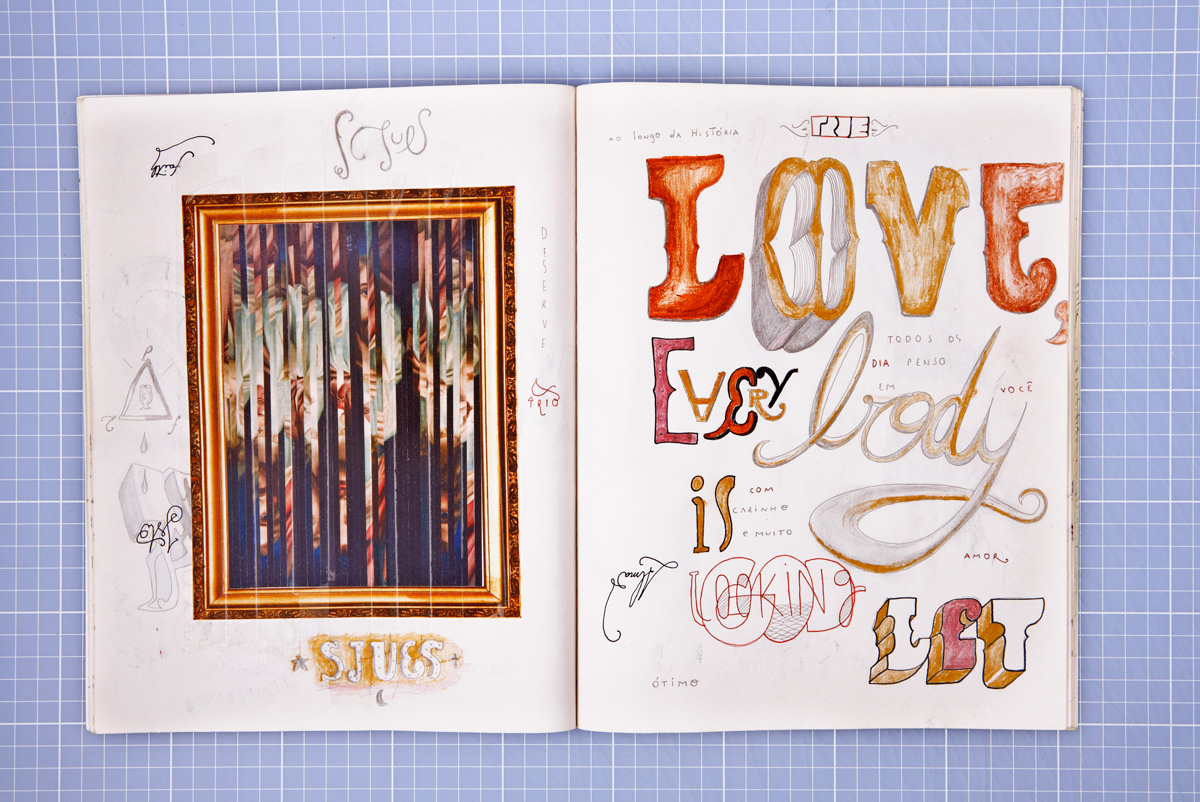 faith
DESERVE
TRIO
SJUES
ao longo da HiSTÓRIA
THE
LOVE,
EVERY body
TODOS OS
DIA PENSO
EM
VOCÊ
is
COM
CARINHO
e MUiTO
AMOR
Alma
LOOKiNG
LET
ÓTiMO